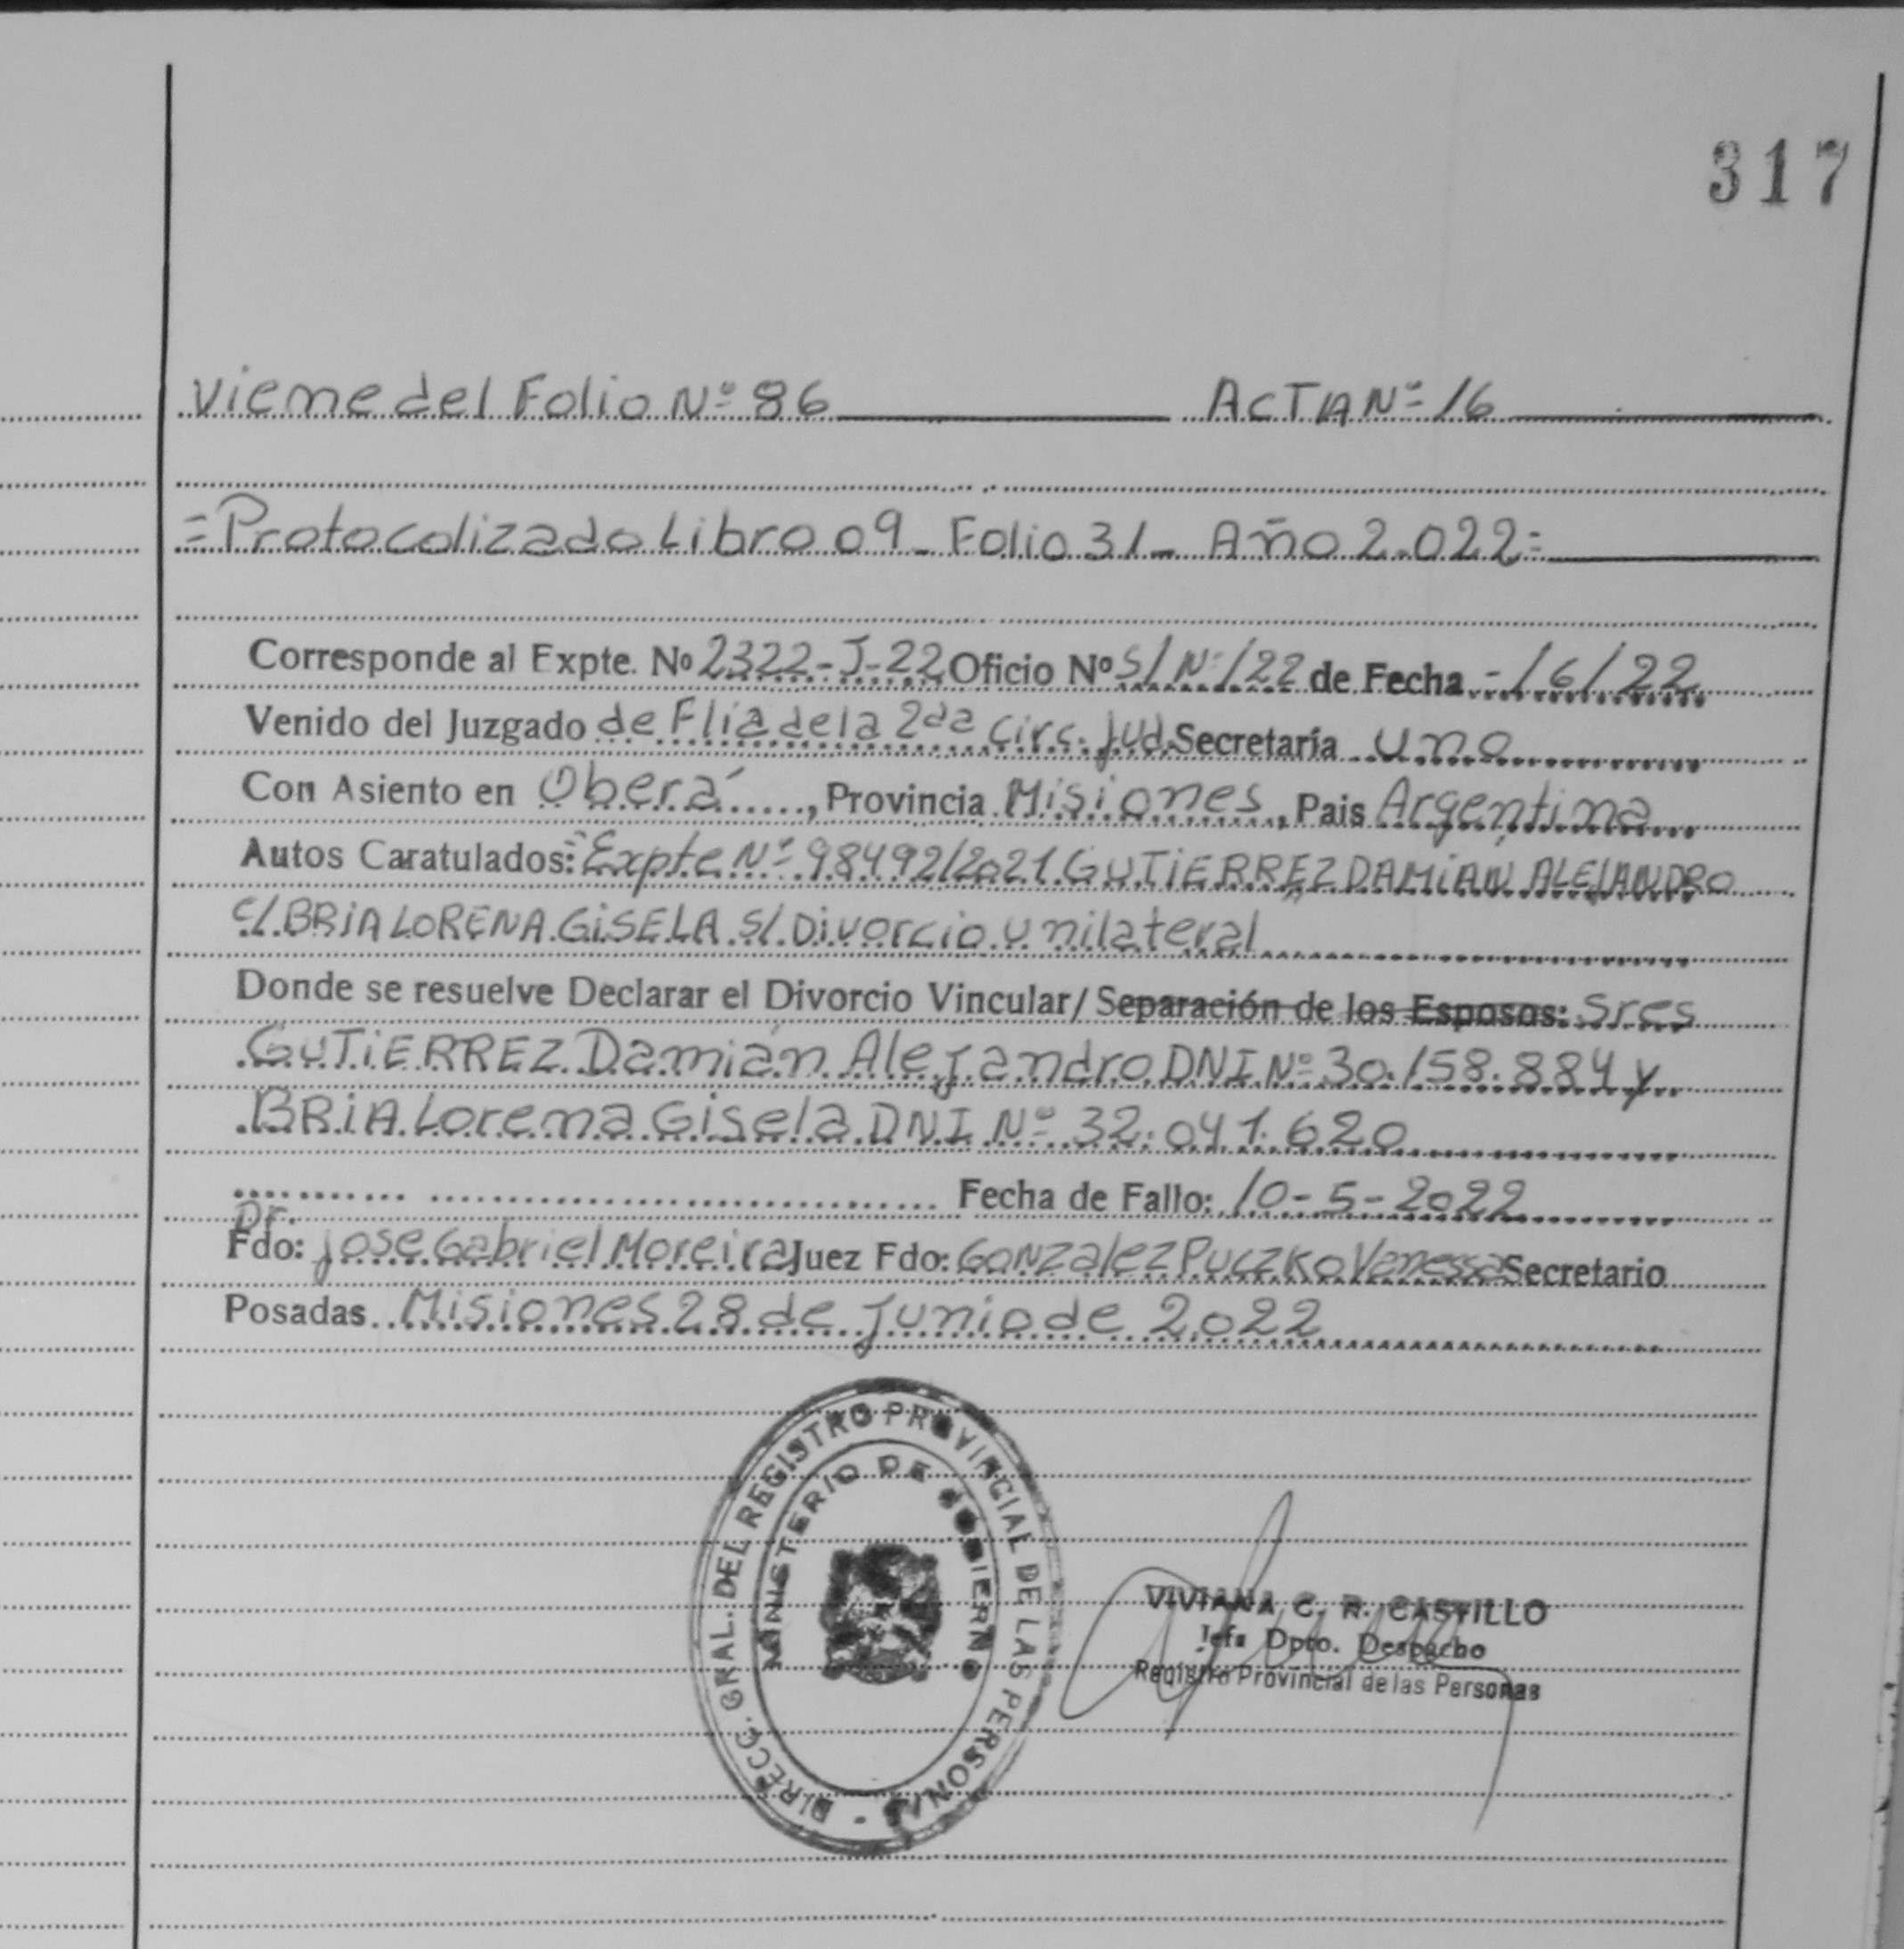 317
Viene del Folio Nº 86 ACTA Nº 16
=Protocolizado Libro 09 - Folio 31 - Año 2.022=
Corresponde al Expte. Nº 2322-J-22 Oficio Nº S/Nº/22 de Fecha -/6/22
Venido del Juzgado de Flia de la 2da Circ. Jud. Secretaría uno
Con Asiento en Oberá, Provincia Misiones, Pais Argentina
Autos Caratulados: Expte Nº 98492/2021 GUTIERREZ DAMIAN ALEJANDRO
C/ BRIA LORENA GISELA S/ Divorcio unilateral
Donde se resuelve Declarar el Divorcio Vincular/ Separación de los Esposos: Sres
GUTIERREZ Damián Alejandro DNI Nº 30.158.884 y
BRIA Lorena Gisela DNI Nº 32.041.620
Fecha de Fallo: 10-5-2022
Dr.
Fdo: Jose Gabriel Moreira Juez Fdo: Gonzalez Puczko Vanessa Secretario
Posadas Misiones 28 de Junio de 2022
DIRECC. GRAL. DEL REGISTRO PROVINCIAL DE LAS PERSONAS -
MINISTERIO DE GOBIERNO
VIVIANA C. R. CASTILLO
Jefa Dpto. Despacho
Registro Provincial de las Personas